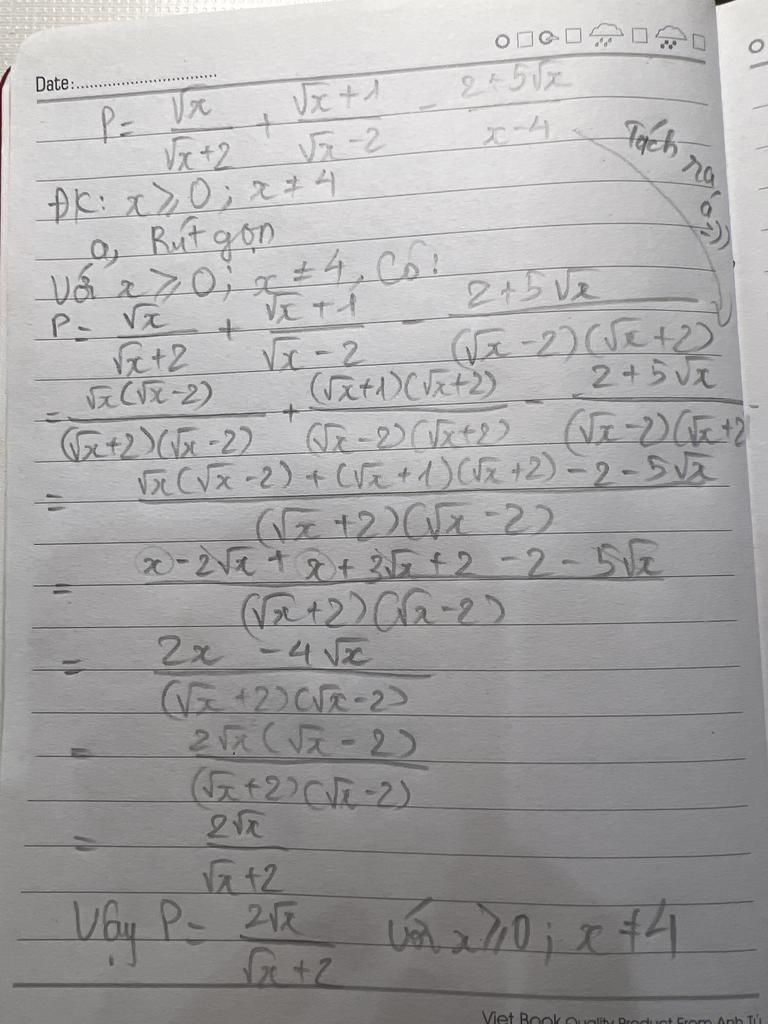 Date:
P = √x/(√x+2) + (√x+1)/(√x-2) - (2+5√x)/(x-4)
Tách ra á =))
ĐK: x ⩾ 0; x ≠ 4
a, Rút gọn
Với x ⩾ 0; x ≠ 4, Có:
P = √x/(√x+2) + (√x+1)/(√x-2) - (2+5√x)/((√x-2)(√x+2))
= √x(√x-2)/((√x+2)(√x-2)) + (√x+1)(√x+2)/((√x-2)(√x+2)) - (2+5√x)/((√x-2)(√x+2
= (√x(√x-2)+(√x+1)(√x+2)-2-5√x)/((√x+2)(√x-2))
= (x-2√x+x+3√x+2-2-5√x)/((√x+2)(√x-2))
= (2x -4√x)/((√x+2)(√x-2))
= 2√x(√x-2)/((√x+2)(√x-2))
= 2√x/(√x+2)
Vậy P = 2√x/(√x+2) với x ⩾ 0; x ≠ 4
Viet Book Quality Product From Anh Tú